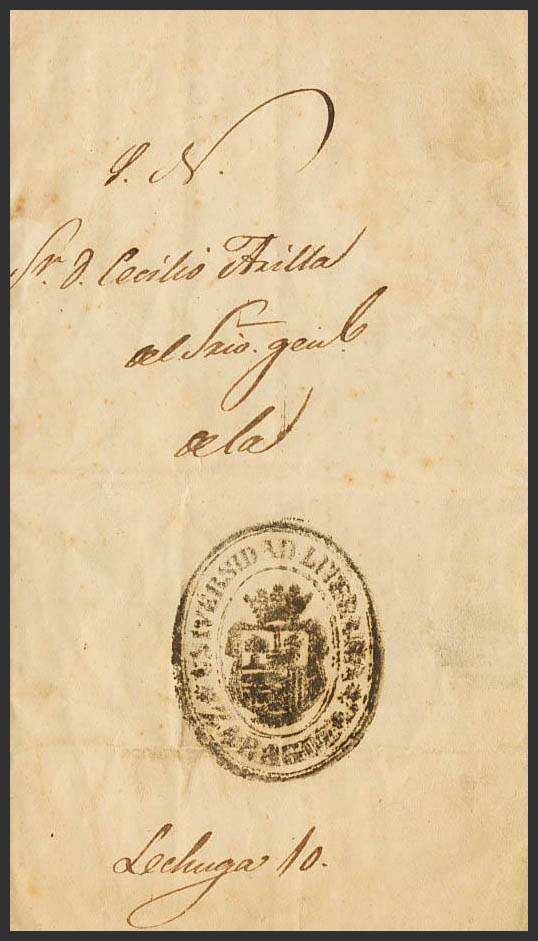 S. N.
Sr. D. Cecilio Arilla
del Srio. genl.
de la
UNIVERSIDAD LITERARIA
ZARAGOZA
Lechuga 10.